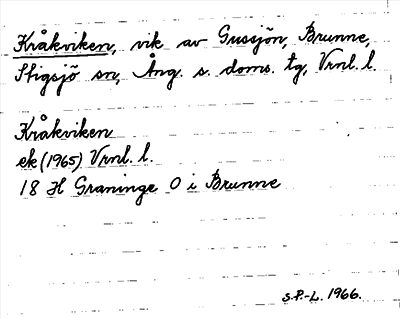 Kråkviken, vik av Gussjön, Brunne,
Stigsjö sn, Ång. s. doms. tg, Vrnl. l.
Kråkviken
ek (1965) Vrnl. l.
18 H Graninge O i Brunne
S.P.-L. 1966.